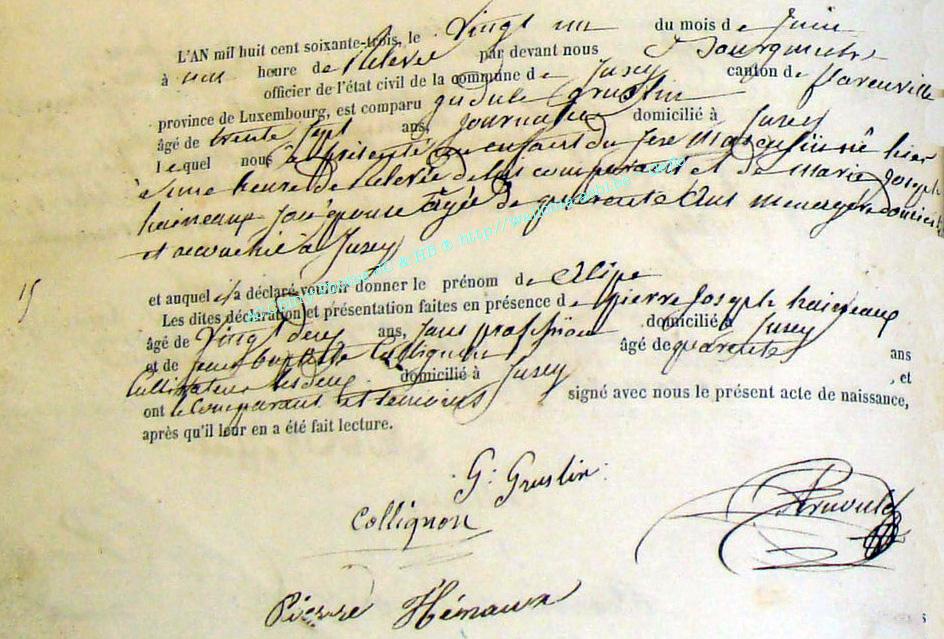 L'AN mil huit cent soixante-trois, le vingt un du mois de juin
à une heure de relevée par devant nous Bourgmestre
officier de l'état civil de la commune de Juzey canton de
province de Luxembourg, est comparu gudule Gruslin
âgé de trente sept ans, Journalier domicilié à Juzey
lequel nous a présenté un enfant du sexe Masculin né hier
à une heure de relevée de lui comparant et de Marie Joseph
haineaux son épouse âgée de quarante ans menagère
et accouchée à Juzey
15
et auquel il a déclaré vouloir donner le prénom de
Les dites déclaration et présentation faites en présence de pierre Joseph haineaux
âgé de vingt deux ans, sans profession domicilié à Juzey
et de jean baptiste Collignon âgé de quarante ans
Cultivateur les deux domicilié à Juzey , et
ont comparant et témoins signé avec nous le présent acte de naissance,
après qu'il leur en a été fait lecture.
G: Gruslin
Collignon
Pierre Hénaux